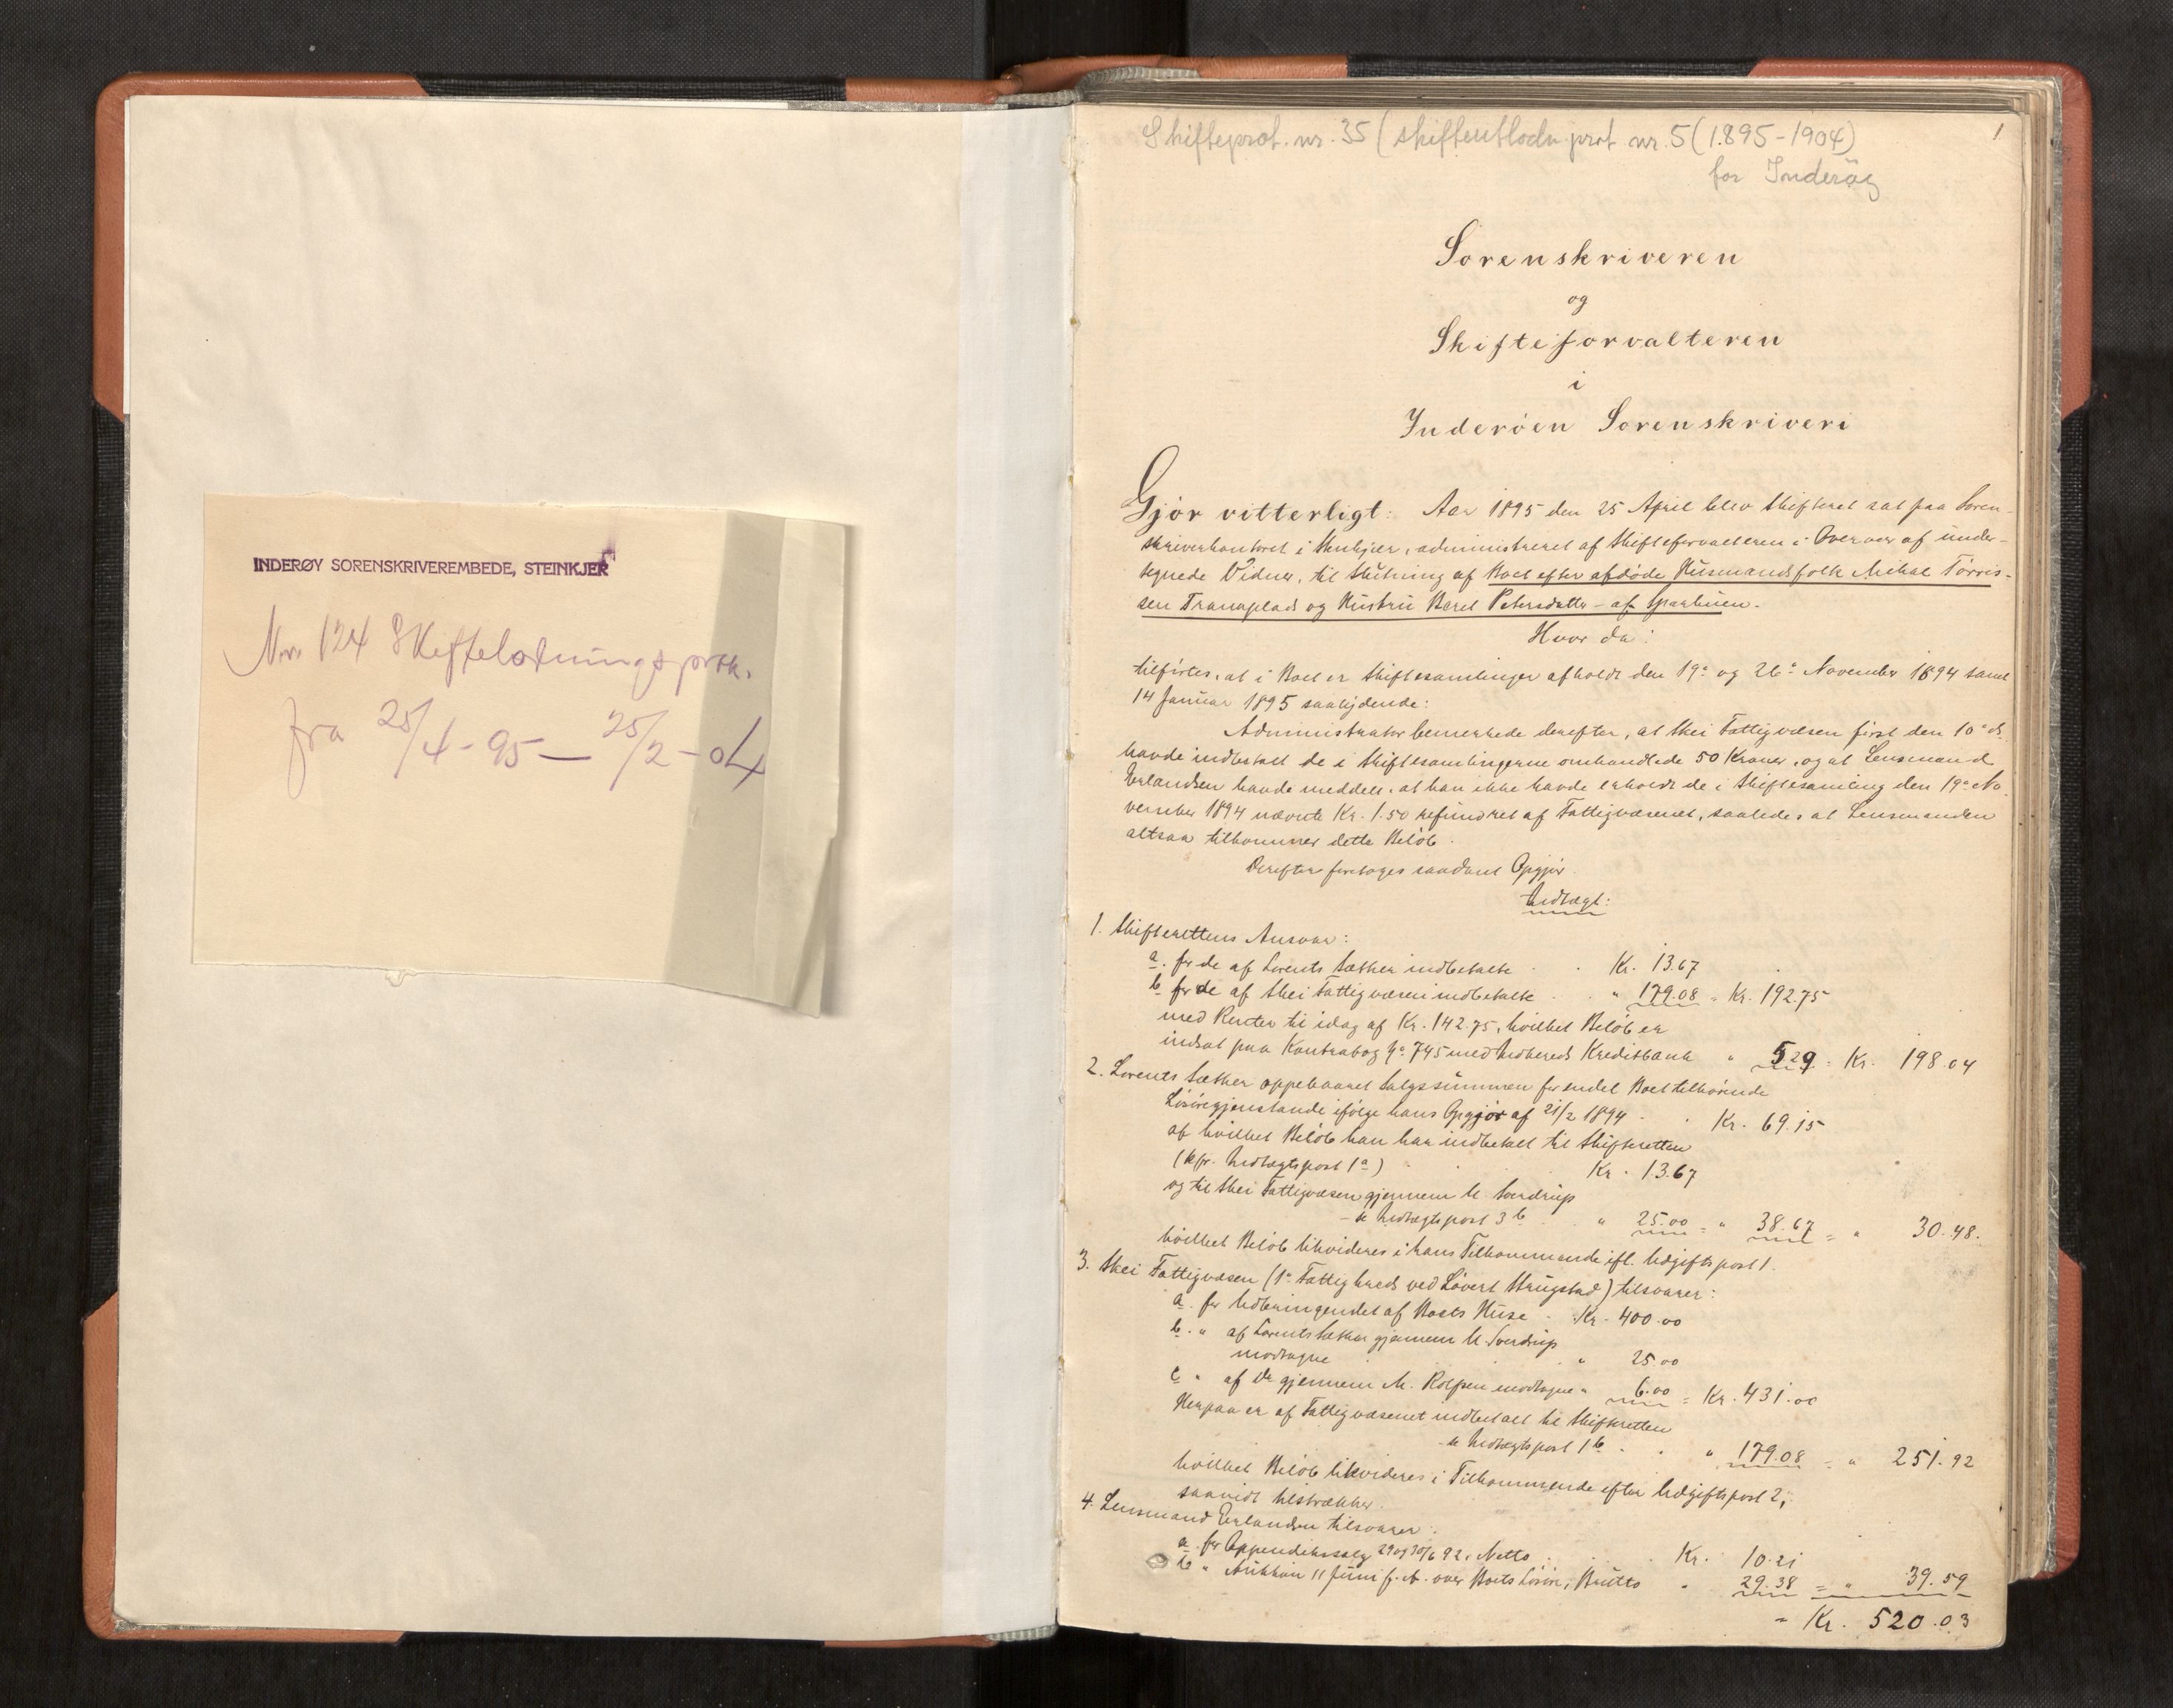 INDERØY SORENSKRIVEREMBEDE, STEINKJER
Nr. 124 Skiftelodningsprot.
fra 25/4 - 95 — 25/2 - 04
Skifteprot. nr. 35 (skifteutlodn.prot nr. 5 (1895-1904)
for Inderøy
1
Sorenskriveren
og
Skifteforvalteren
i
Inderøen Sorenskriveri
Gjør vitterligt: Aar 1895 den 25 April blev Skifteret sat paa Soren-
skriverkontoret i Stenkjær, administreret af Skifteforvalteren i Overvær af under-
tegnede Vidner, til Slutning af Boet efter afdøde Husmandsfolk Mikal Tørris-
sen Tranaplads og Hustru Beret Petersdatter - af Sparbuen.
Hvor da:
tilførtes, at i Boet er Skiftesamlinger afholdt den 19de og 26de November 1894 samt
14 Januar 1895 saalydende:
Administrator bemærkede derefter, at Skei Fattigvæsen først den 10de ds.
havde indbetalt de i Skiftesamlingerne omhandlede 50 Kroner, og at Lensmand
Erlandsen havde meddelt, at han ikke havde erholdt de i Skiftesamling den 19de No-
vember 1894 nævnte Kr. 1.50 refunderet af Fattigvæsenet, saaledes at Lensmanden
altsaa tilkommer dette Beløb.
Derefter foretoges saadant Opgjør.
Indtægt:
1. Skifterettens Ansvar:
a. for de af Lorents Sæther indbetalte Kr. 13.67
b. for de af Skei Fattigvæsen indbetalte " 179.08 = Kr. 192.75
med Renter til idag af Kr. 142.75, hvilket Beløb er
indsat paa Kontrabog No 745 med Indherreds Kreditbank " 5.29 = Kr. 198.04
2. Lorents Sæther oppebaaret Salgssummen for endel Boet tilhørende
Løsøregjenstande ifølge hans Opgjør af 21/2 1894 Kr. 69.15
af hvilket Beløb han har indbetalt til Skifteretten
(kfr. Indtægtspost 1a) Kr. 13.67
og til Skei Fattigvæsen gjennem U. Sverdrup
- se Indtægtspost 3b " 25.00 = " 38.67 = " 30.48.
hvilket Beløb likvideres i hans Tilkommende ifl. Udgiftspost 1.
3. Skei Fattigvæsen (1ste Fattigkreds ved Sivert Strugstad) tilsvarer:
a. for Udbringendet af Boets Huse Kr. 400.00
b. " af Lorents Sæther gjennem U. Sverdrup
modtagne " 25.00
c. " af Do gjennem M. Rolfsen modtagne " 6.00 = Kr. 431.00
Herpaa er af Fattigvæsenet indbetalt til Skifteretten
- se Indtægtspost 1b " 179.08 = " 251.92
hvilket Beløb likvideres i Tilkommende efter Udgiftspost 2,
saavidt tilstrækker.
4. Lensmand Erlandsen tilsvarer:
a. for Appendikssalg 29 og 30/6 92, Netto Kr. 10.21
b " Auktion 11 Juni f. A. over Boets Løsøre, Brutto " 29.38 = " 39.59
= Kr. 520.03